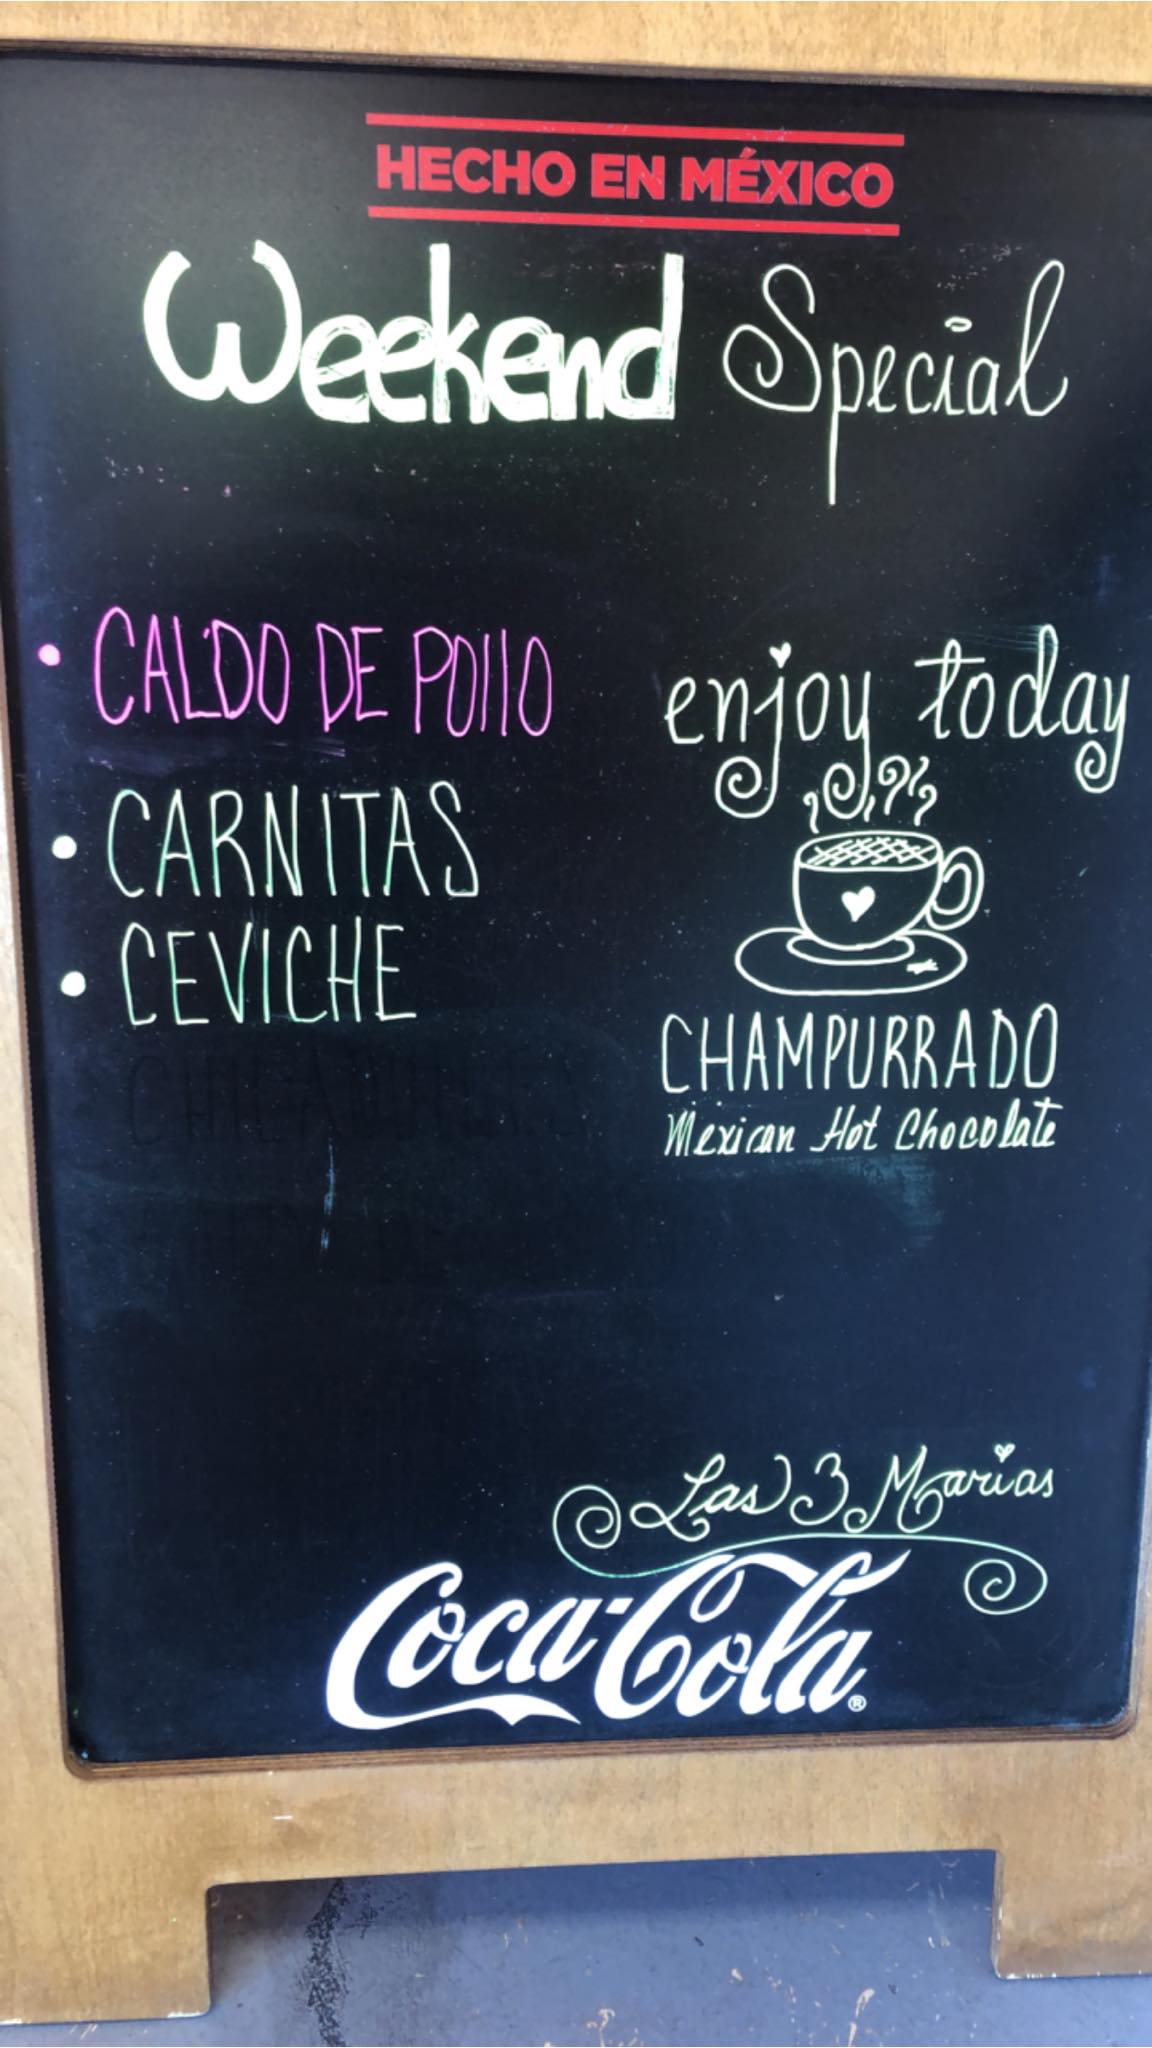 HECHO EN MÉXICO
Weekend Special
• CALDO DE POllO
• CARNITAS
• CEVICHE
enjoy today
CHAMPURRADO
Mexican Hot Chocolate
Las 3 Marias
Coca-Cola®